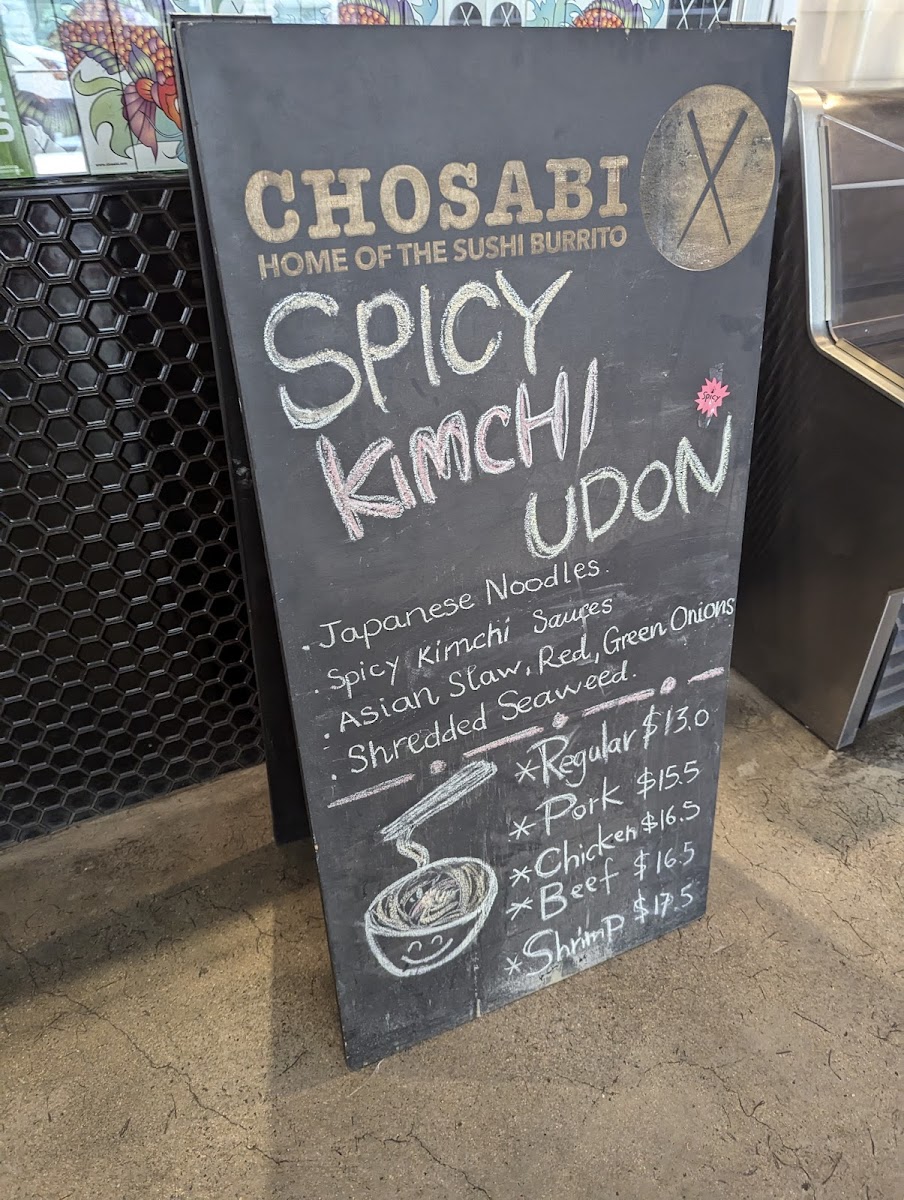 CHOSABI
HOME OF THE SUSHI BURRITO
SPICY
KIMCHI
SPICY
UDON
. Japanese Noodles.
. Spicy Kimchi Sauces
. Asian Slaw, Red, Green Onions
. Shredded Seaweed.
*Regular $13.0
*Pork $15.5
*Chicken $16.5
*Beef $16.5
*Shrimp $17.5